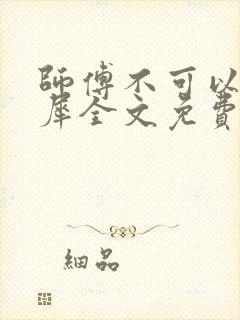 師傅不可以
犀全文免費
細品